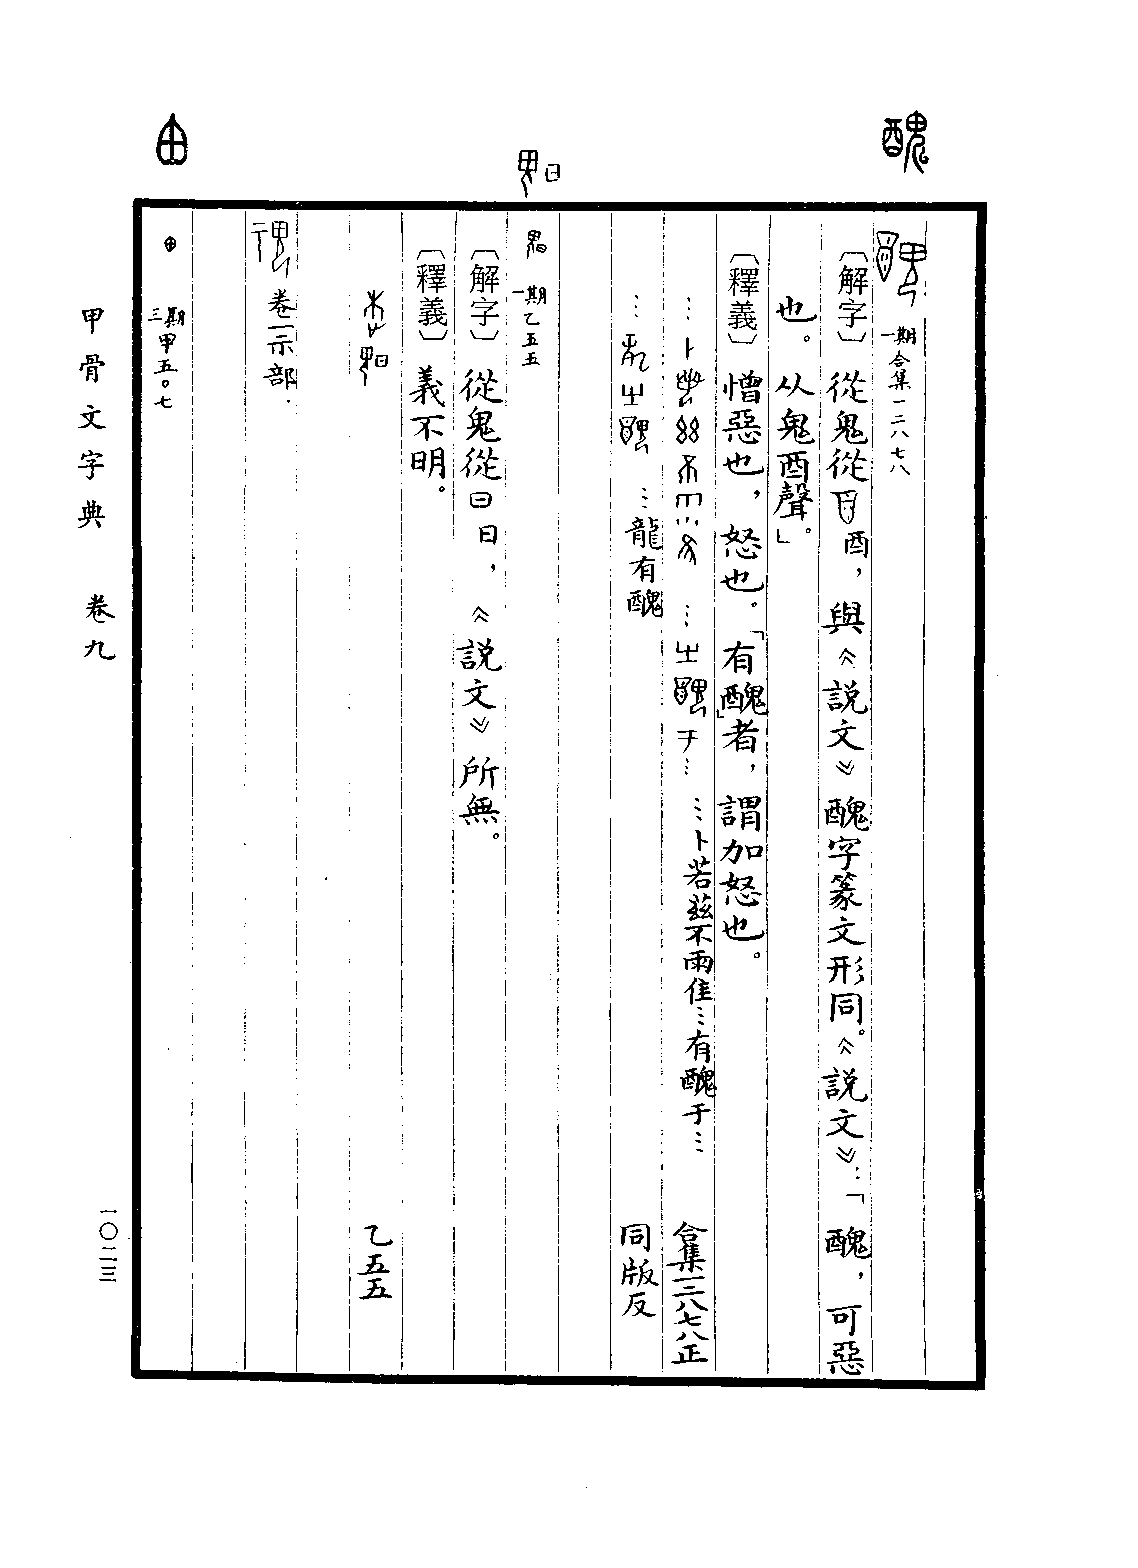 醜
一期 合集一二八七八
〔解字〕從鬼從酉,與《說文》醜字篆文形同。《說文》:「醜,可惡
也。从鬼酉聲。」
〔釋義〕憎惡也,怒也。「有醜」者,謂加怒也。
…卜若茲不雨隹…有醜于… 合集一二八七八正
…龍有醜 同版反
一期 乙五五
〔解字〕從鬼從日,《說文》所無。
〔釋義〕義不明。
乙五五
卷一示部.
三期 甲五〇七
甲骨文字典 卷九
一〇二三